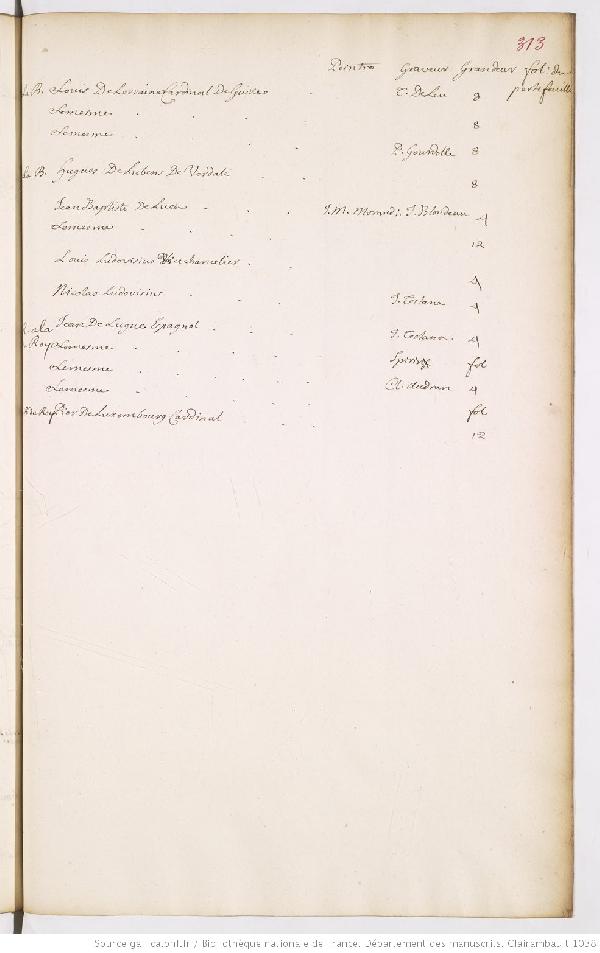 313
Peintre Graveur Grandeur fol. du
porte feuille
B. Louis De Lorraine Cardinal De Guise T. De Leu 8
Lemesme 8
Lemesme P. Gourdelle 8
B. Hugues De Lubens De Verdale 8
Jean Baptiste De Luca J. Blondeau 4
Lemesme 12
Louis Ludovisius Vicechancelier 4
Nicolas Ludovisius J. Testana 4
Jean De Lugues Espagnol J. Testana 4
Lemesme fol
Lemesme Cl. Audran 4
Lemesme fol
De Luxembourg Cardinal 12
Source gallica.bnf.fr / Bibliothèque nationale de France. Département des manuscrits. Clairambault 1038